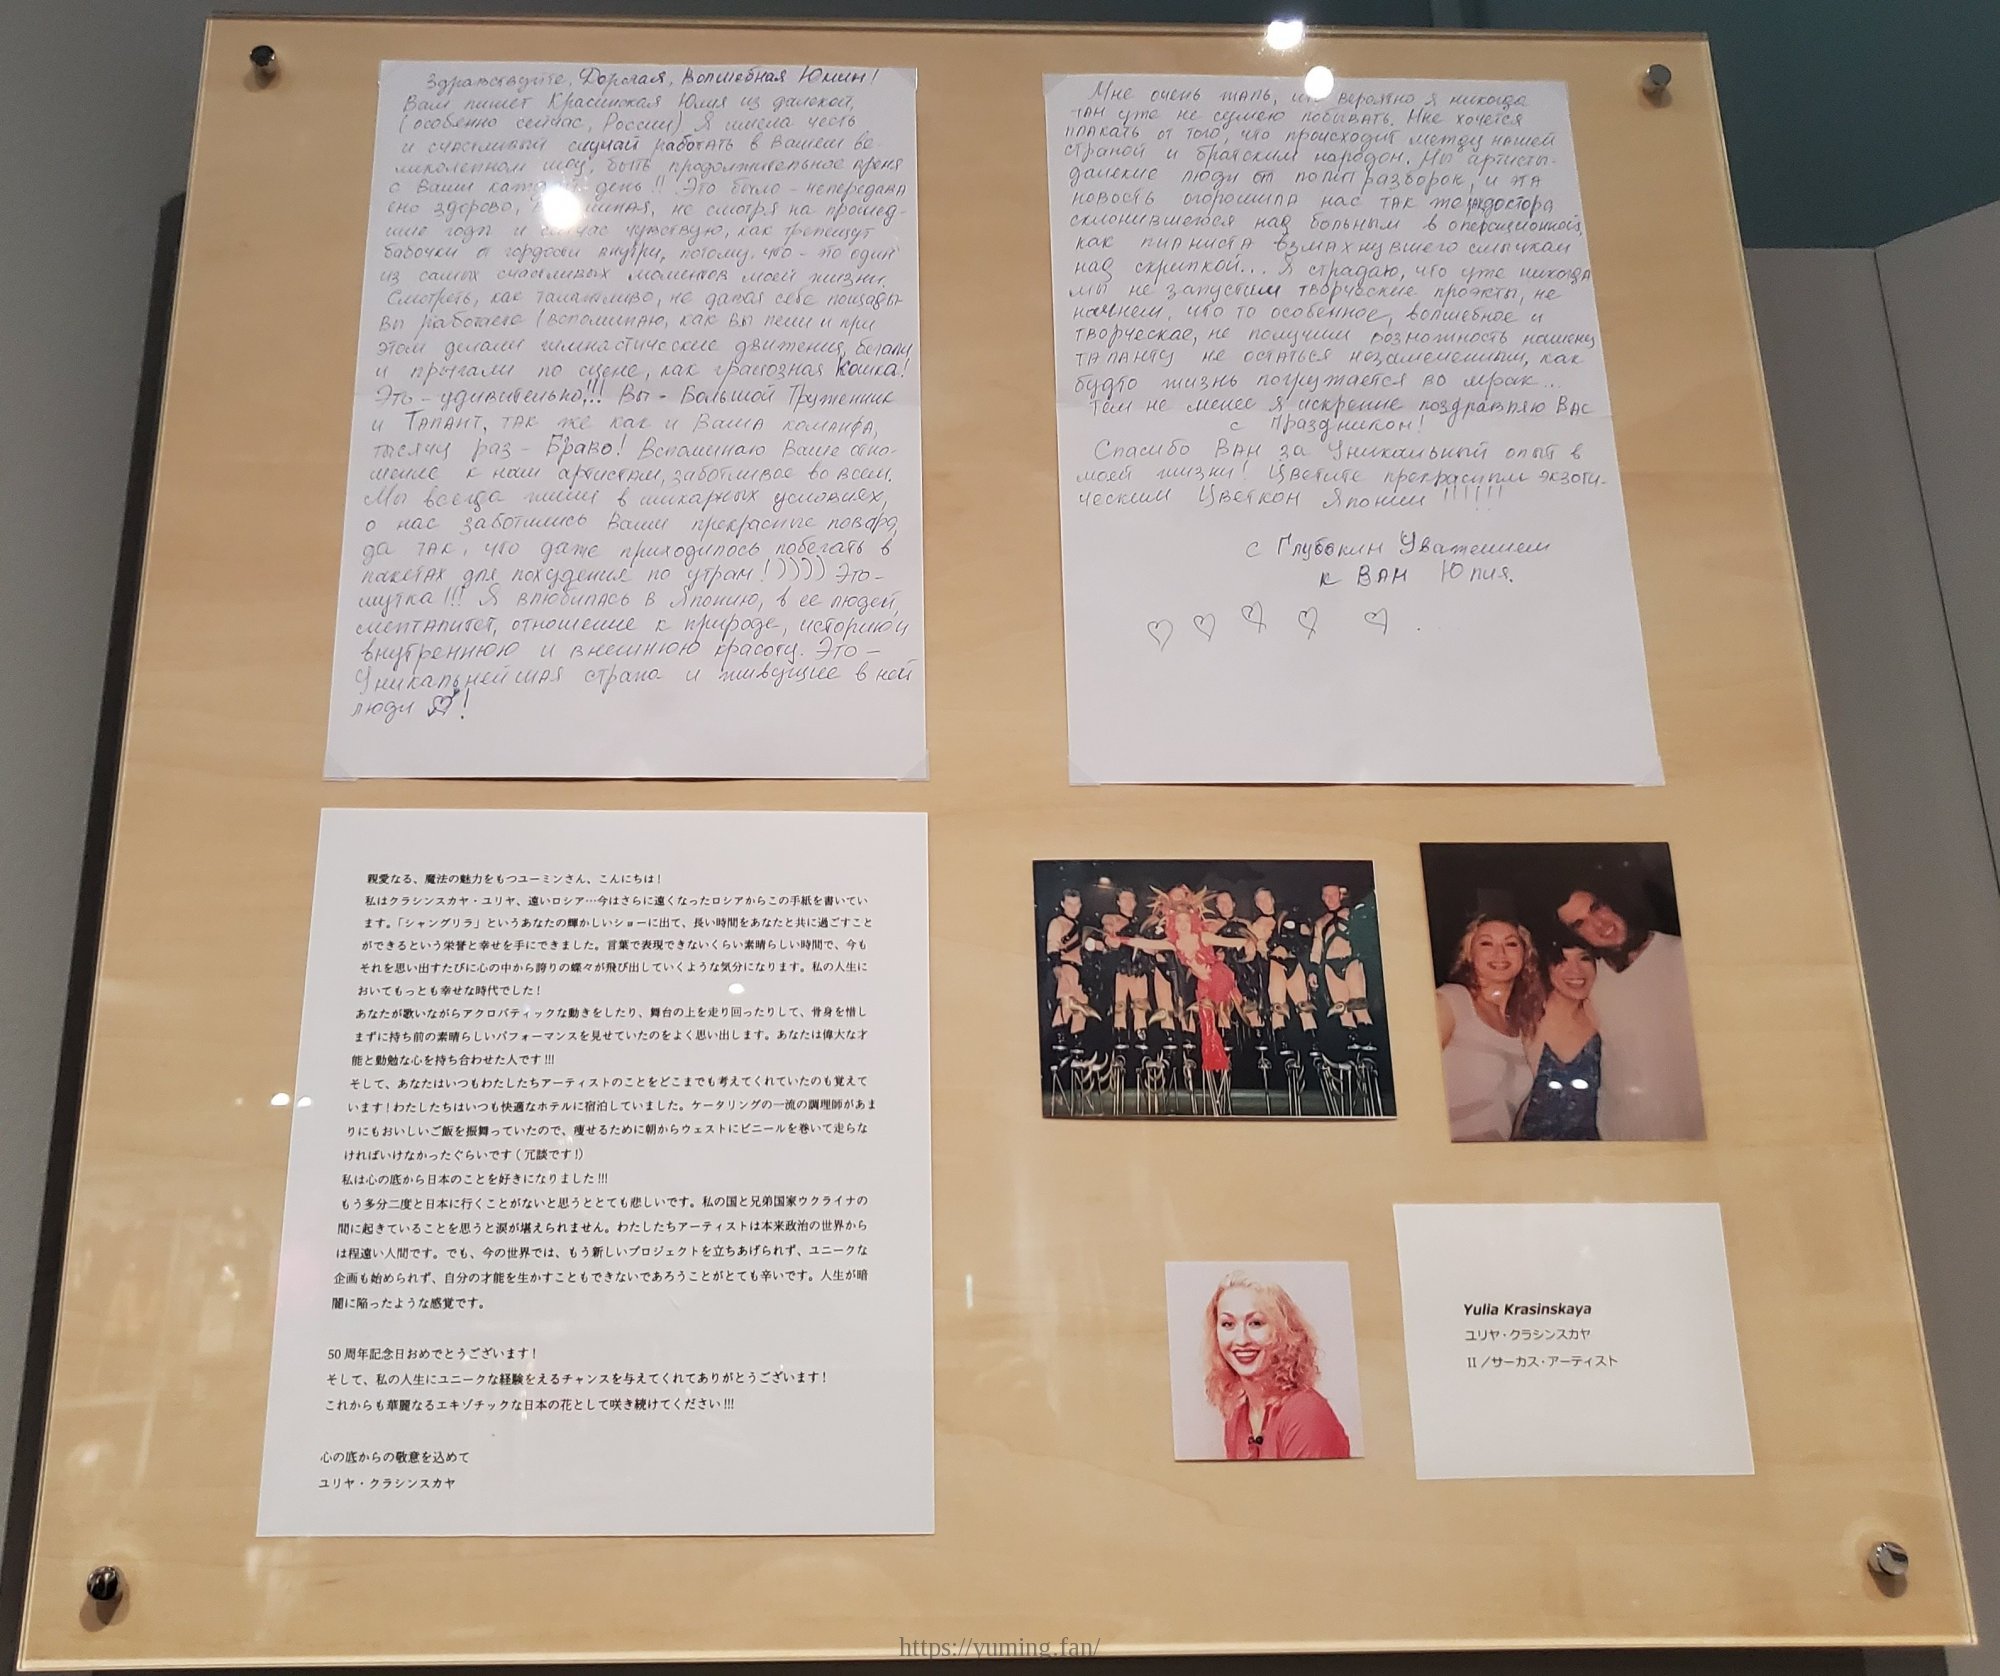 Здравствуйте, Дорогая, Волшебная Юмин!
Вам пишет Красинская Юлия из далекой,
(особенно сейчас, России) Я имела честь
и счастливый случай работать в Вашем ве-
ликолепном шоу, быть продолжительное время
с Вами каждый день!! Это было - непередава
емо здорово, не смотря на прошед-
шие годы и сейчас чувствую, как трепещут
бабочки от гордости внутри, потому, что - это один
из самых счастливых моментов моей жизни.
Смотреть, как талантливо, не давая себе пощады
Вы работаете (вспоминаю, как Вы пели и при
этом делали гимнастические движения, бегали
и прыгали по сцене, как грациозная Кошка!
Это - удивительно!!! Вы - Большой Труженник
и Талант, так же как и Ваша команда,
тысячу раз - Браво! Вспоминаю Ваше отно-
шение к нам артистам, заботливое во всем.
Мы всегда жили в шикарных условиях,
о нас заботились Ваши прекрасные повора,
да так, что даже приходилось побегать в
пакетах для похудения по утрам!)))) Это-
шутка!!! Я влюбилась в Японию, в ее людей,
менталитет, отношение к природе, историю и
внутреннюю и внешнюю красоту. Это -
Уникальнейшая страна и живущие в ней
люди !
Мне очень жаль, что вероятно я никогда
там уже не сумею побывать. Мне хочется
плакать от того, что происходит между нашей
страной и братским народом. Мы артисты-
далекие люди от полит разборок, и эта
новость огорошила нас так же как доктора
склонившегося над больным в операционной,
как пианиста взмахнувшего смычком
над скрипкой... Я страдаю, что уже никогда
мы не запустим творческие проэкты, не
начнем, что то особенное, волшебное и
творческое, не получим возможность нашему
таланту не остаться незамеченным, как
будто жизнь погружается во мрак...
Тем не менее я искренне поздравляю Вас
с Праздником!
Спасибо Вам за Уникальный опыт в
моей жизни! Цветите прекрасным экзоти-
ческим Цветком Японии !!!!!!
с Глубоким Уважением
к Вам Юлия.
親愛なる、魔法の魅力をもつユーミンさん、こんにちは!
私はクラシンスカヤ・ユリヤ、遠いロシア…今はさらに遠くなったロシアからこの手紙を書いてい
ます。「シャングリラ」というあなたの輝かしいショーに出て、長い時間をあなたと共に過ごすこと
ができるという栄誉と幸せを手にできました。言葉で表現できないくらい素晴らしい時間で、今も
それを思い出すたびに心の中から誇りの蝶々が飛び出していくような気分になります。私の人生に
おいてもっとも幸せな時代でした!
あなたが歌いながらアクロバティックな動きをしたり、舞台の上を走り回ったりして、骨身を惜し
まずに持ち前の素晴らしいパフォーマンスを見せていたのをよく思い出します。あなたは偉大な才
能と勤勉な心を持ち合わせた人です!!!
そして、あなたはいつもわたしたちアーティストのことをどこまでも考えてくれていたのも覚えて
います!わたしたちはいつも快適なホテルに宿泊していました。ケータリングの一流の調理師があま
りにもおいしいご飯を振舞っていたので、痩せるために朝からウェストにビニールを巻いて走らな
ければいけなかったぐらいです(冗談です!)
私は心の底から日本のことを好きになりました!!!
もう多分二度と日本に行くことがないと思うととても悲しいです。私の国と兄弟国家ウクライナの
間に起きていることを思うと涙が堪えられません。わたしたちアーティストは本来政治の世界から
は程遠い人間です。でも、今の世界では、もう新しいプロジェクトを立ちあげられず、ユニークな
企画も始められず、自分の才能を生かすこともできないであろうことがとても辛いです。人生が暗
闇に陥ったような感覚です。
50周年記念日おめでとうございます!
そして、私の人生にユニークな経験をえるチャンスを与えてくれてありがとうございます!
これからも華麗なるエキゾチックな日本の花として咲き続けてください!!!
心の底からの敬意を込めて
ユリヤ・クラシンスカヤ
Yulia Krasinskaya
ユリヤ・クラシンスカヤ
II/サーカス・アーティスト
https://yuming.fan/